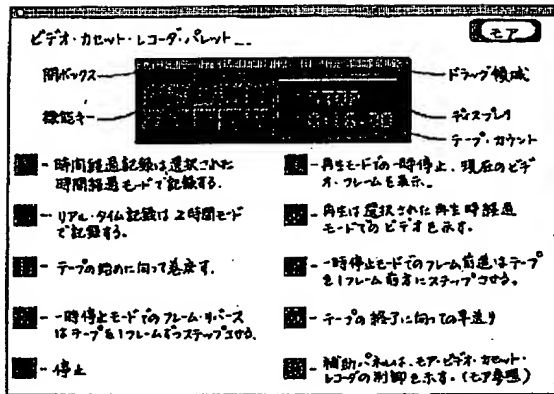 ビデオ・カセット・レコーダ・パレット...
モア
閉ボックス
機能キー
ドラッグ領域
ディスプレイ
テープ・カウント
STOP
- 時間経過記録は選択された
時間経過モードで記録する.
- リアル・タイム記録は2時間モード
で記録する.
- テープの始めに向って巻戻す.
- 一時停止モードでのフレーム・リバース
はテープを1フレームずつステップさせる.
- 停止
- 再生モードでの一時停止、現在のビデ
オ・フレームを表示.
- 再生は選択された再生時経過
モードでのビデオを示す.
- 一時停止モードでのフレーム前進はテープ
を1フレーム前方にステップさせる.
- テープの終了に向っての早送り
- 補助パネルは、モア・ビデオ・カセット・
レコーダの制御を示す.(モア参照)